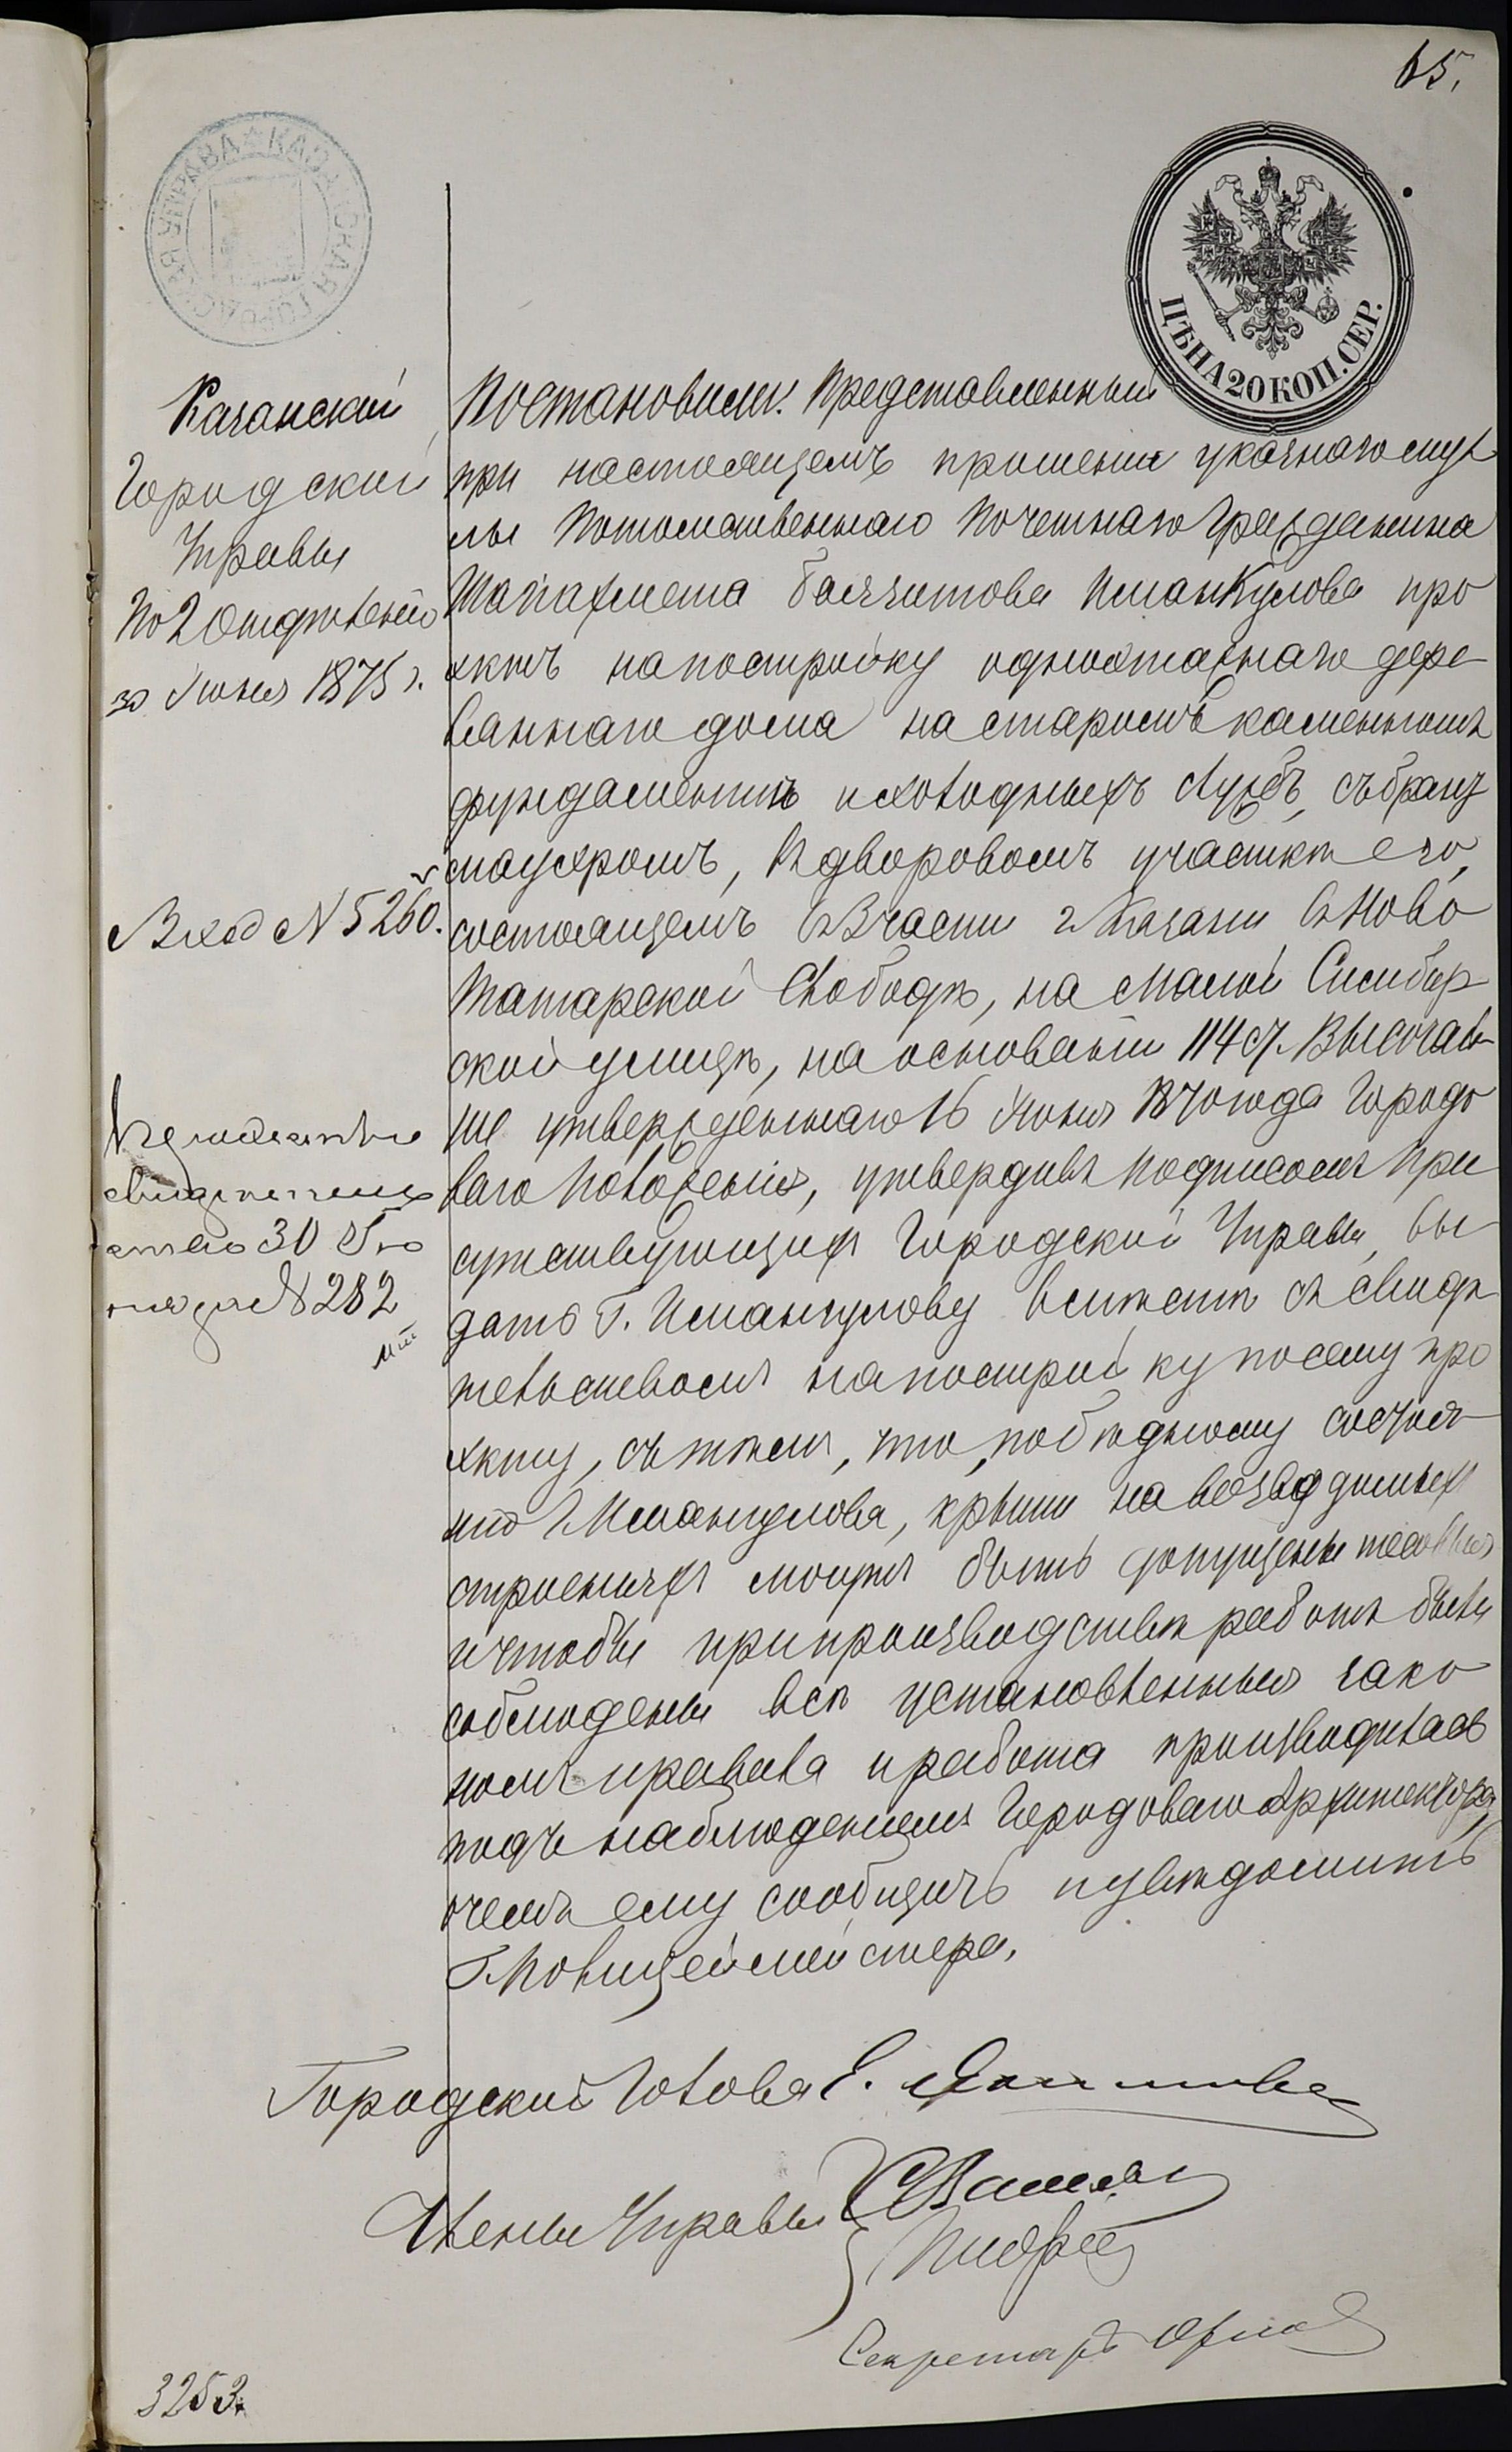 65.
КАЗАНСКАЯ ГОРОДСКАЯ УПРАВА
ЦѢНА 20 КОП. СЕР.
Казанской
Городской
Управы
По 2 Отдѣленію
30 Іюня 1875 г.
Вход № 5260.
свидѣтель
ство 30 Iю
ня за № 282
Постановили: Представленный
при настоящемъ прошеніи указнаго мул
лы Потомственнаго Почетнаго Гражданина
Шагіахмета Иманкулова про
эктъ на постройку одноэтажнаго дере
вяннаго дома на старомъ каменномъ
фундаментѣ и холодныхъ службъ, съ бранд
мауэромъ, въ дворовомъ участкѣ его,
состоящемъ въ 3 части г. Казани въ Ново
Татарской Слободѣ, на Малой Симбир
ской улицѣ, на основаніи 114 ст. Высочай
ше утвержденнаго 16 Іюня 1870 года Городо
ваго Положенія, утвердивъ подписомъ При
сутствующихъ Городской Управы, вы
дать Г. Иманкулову вмѣстѣ съ свидѣ
тельствомъ на постройку по сему про
экту, съ тѣмъ, что, по бѣдному состоя
нію г. Иманкулова, крыши на возводимыхъ
строеніяхъ могутъ быть допущены тесовыя
и чтобы при производствѣ работъ были
соблюдены всѣ установленныя зако
номъ правила и работа производилась
подъ наблюденіемъ Городоваго Архитектора,
о чемъ ему сообщить и увѣдомить
Г. Полицеймейстера.
Городской Голова Е.
Члены Управы
Секретарь
3253.